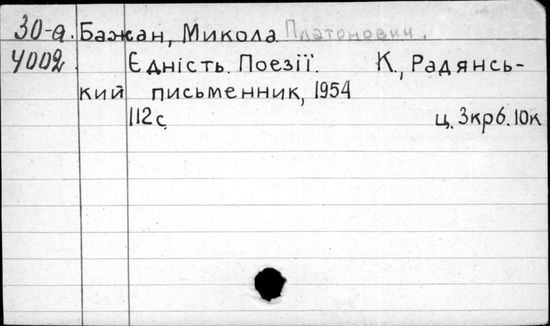 30-а. Бажан, Микола Платонович.
4002. Єдність. Поезії. К., Радянсь-
кий письменник, 1954
112с. ц. 3крб. 10к